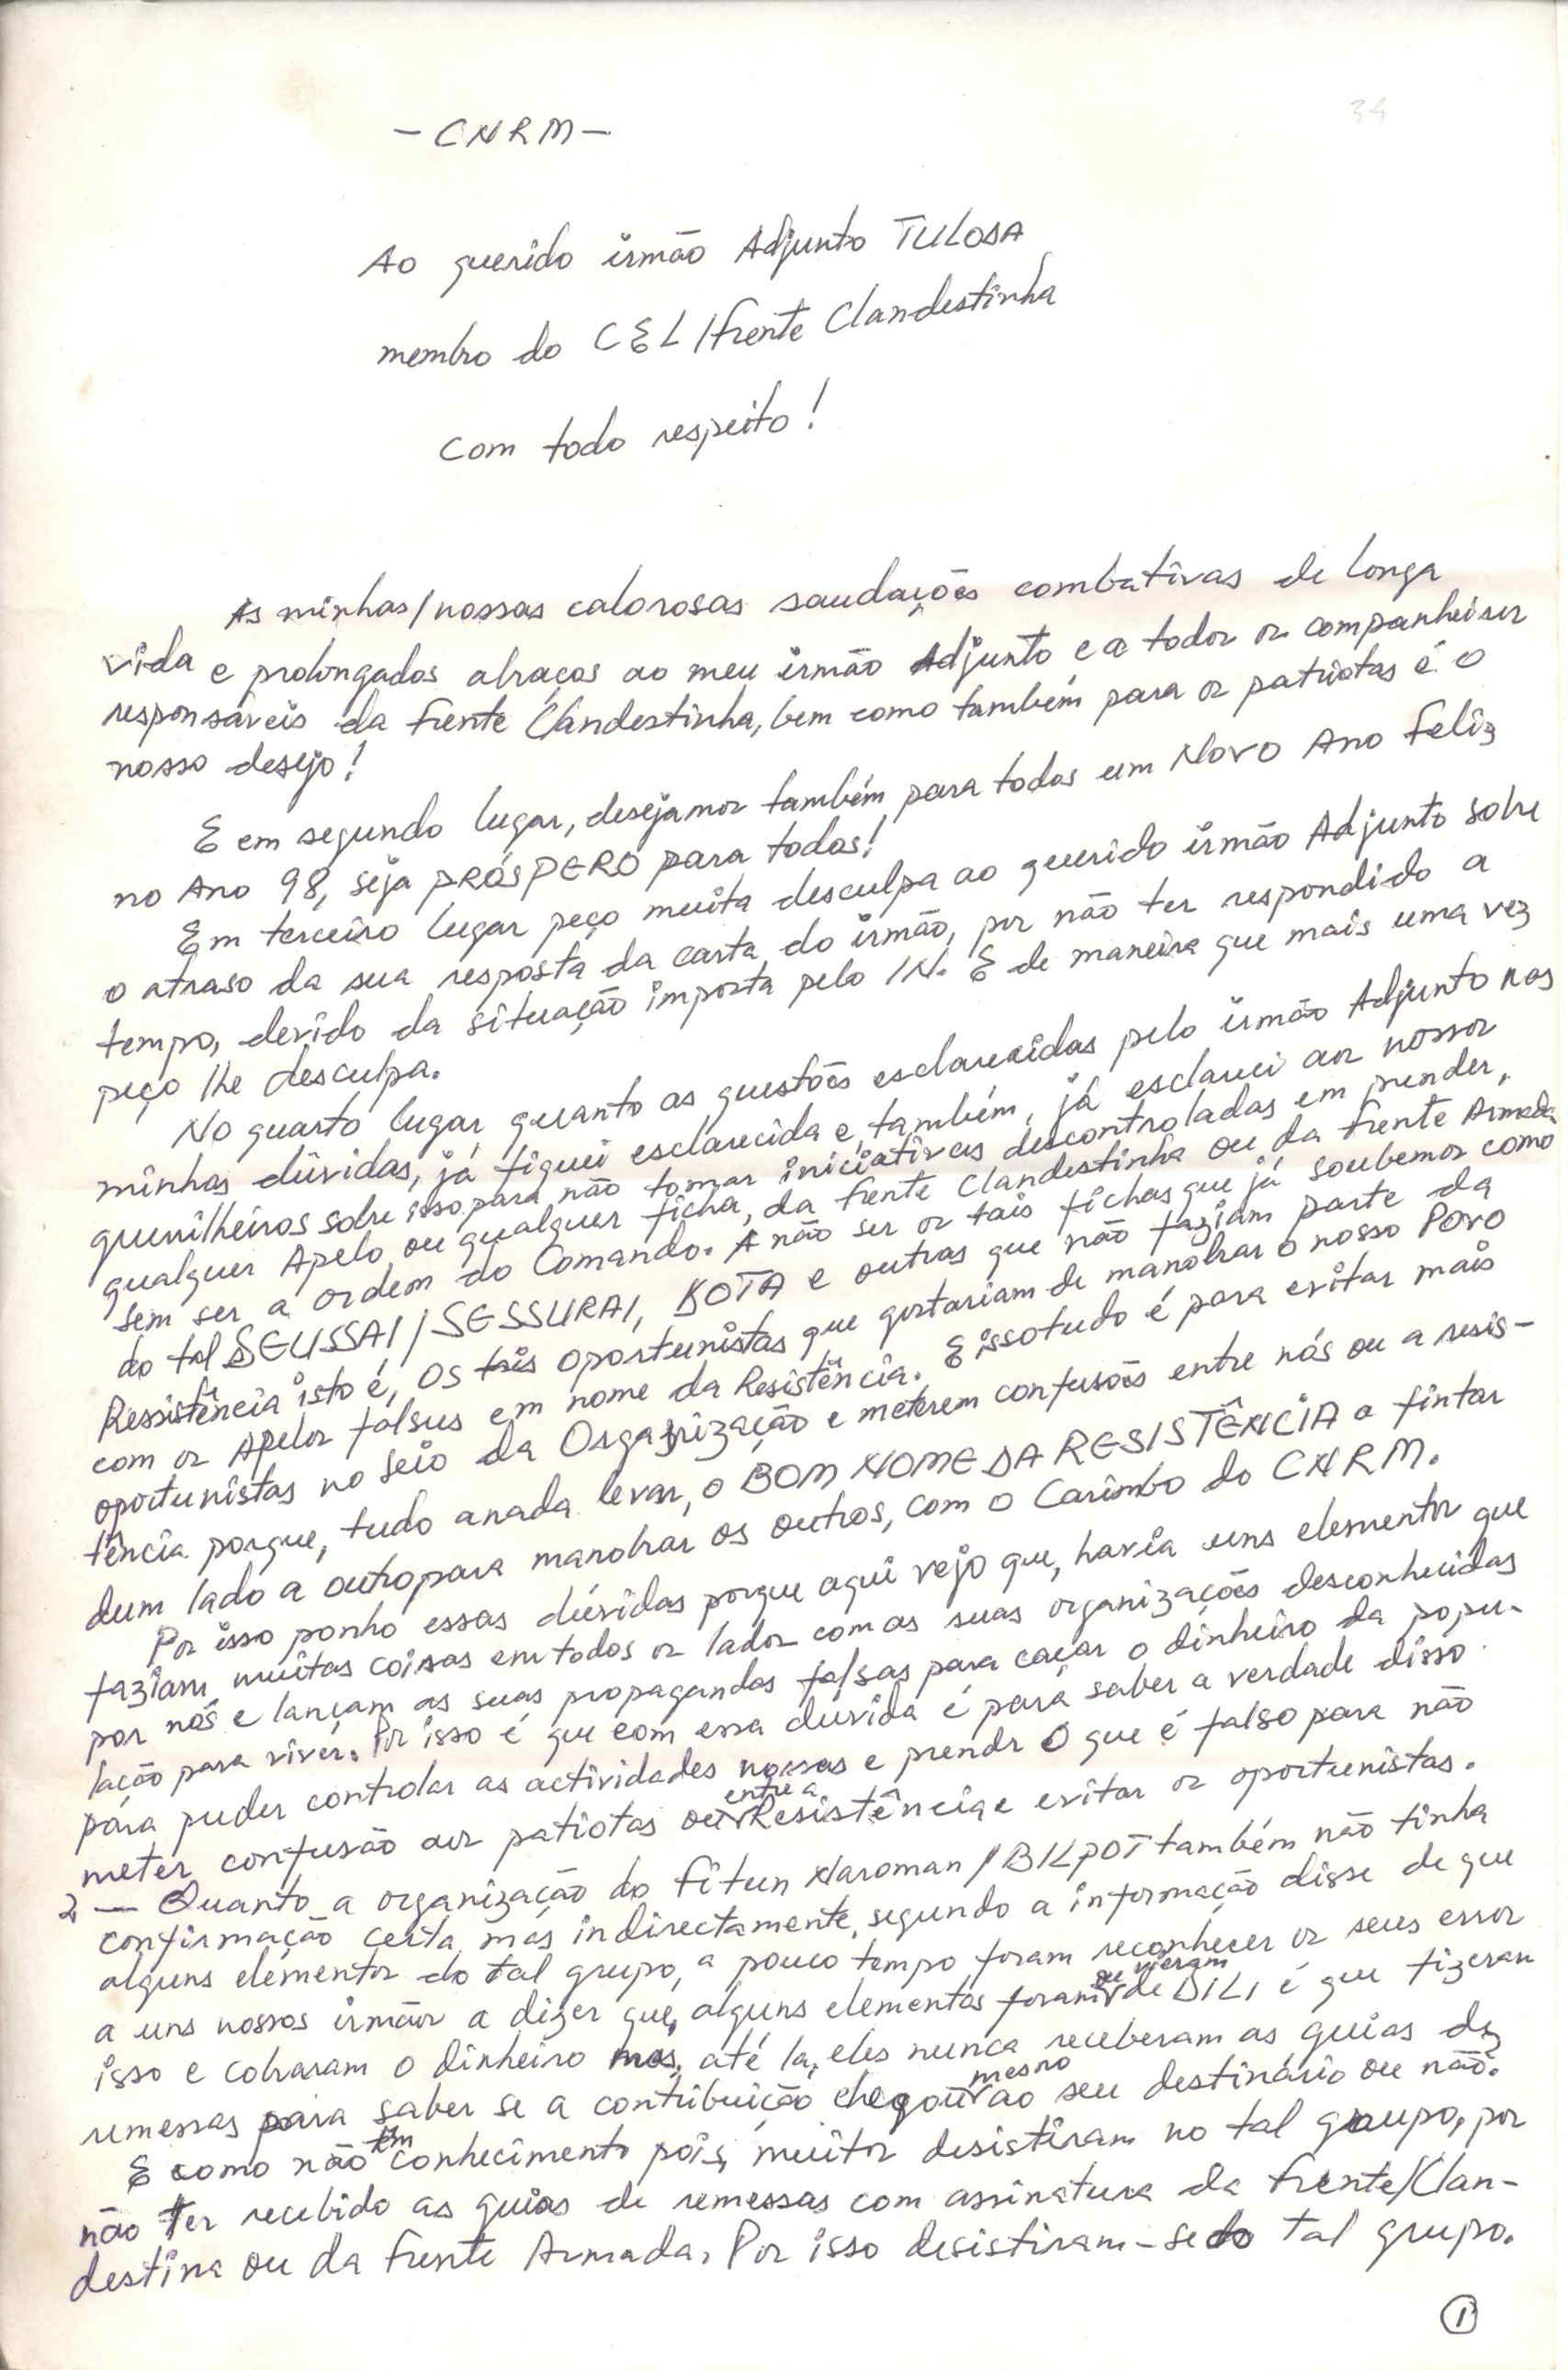 34
- CNRM -
Ao querido irmão Adjunto TULODA
membro do CEL/Frente Clandestinha
com todo respeito!
As minhas/nossas calorosas saudações combativas de longa
vida e prolongados abraços ao meu irmão Adjunto e a todos os companheiros
responsáveis da Frente Clandestinha, bem como também para os patriotas é o
nosso desejo!
E em segundo lugar, desejamos também para todos um Novo Ano Feliz
no Ano 98, seja PRÓSPERO para todos!
Em terceiro lugar peço muita desculpa ao querido irmão Adjunto sobre
o atraso da sua resposta da carta do irmão, por não ter respondido a
tempo, devido da situação imposta pelo IN. E de maneira que mais uma vez
peço lhe desculpa.
No quarto lugar, quanto as questões esclarecidas pelo irmão Adjunto nas
minhas dúvidas, já fiquei esclarecida e, também, já esclareci aos nossos
guerrilheiros sobre isso para não tomar iniciativas descontroladas em prender,
qualquer Apelo, ou qualquer ficha, da Frente Clandestinha ou da Frente Armada
sem ser a ordem do Comando. A não ser os tais fichas que já soubemos como
do tal SEUSSAI/SESSURAI, BOTA e outras que não faziam parte da
Ressistência isto é, OS três oportunistas que gostariam de manobrar o nosso Povo
com os Apelos falsus em nome da Resistência. E isso tudo é para evitar mais
oportunistas no seio da Organização e meterem confusões entre nós ou a resis-
tência porque, tudo anada levar, o BOM NOME DA RESISTÊNCIA a fintar
dum lado a outro para manobrar os outros, com o Carimbo do CNRM.
Por isso ponho essas dúvidas porque aqui vejo que, havia uns elementos que
faziam muitas coisas em todos os lados com as suas organizações desconhecidas
por nós e lançam as suas propagandas falsas para caçar o dinheiro da popu-
lação para viver. Por isso é que com essa dúvida é para saber a verdade disso
para puder controlar as actividades nossas e prendr o que é falso para não
meter confusão aos patiotas ou entre a Resistência e evitar os oportunistas.
2 — Quanto a organização do Fitun Naroman/BILPOT também não tinha
confirmação certa mas indirectamente, segundo a informação disse de que
alguns elementos do tal grupo, a pouco tempo foram reconhecer os seus erros
a uns nossos irmãos a dizer que, alguns elementos foram que vieram de DILI é que fizeram
isso e cobraram o dinheiro mas, até la, eles nunca receberam as guias de
remessas para saber se a contribuição chegou mesmo ao seu destinário ou não.
E como não tem conhecimento pois, muitos desistiram no tal grupo, por
não ter recebido as guias de remessas com assinatura da Frente/Clan-
destina ou da Frente Armada. Por isso desistiram-se do tal grupo.
1